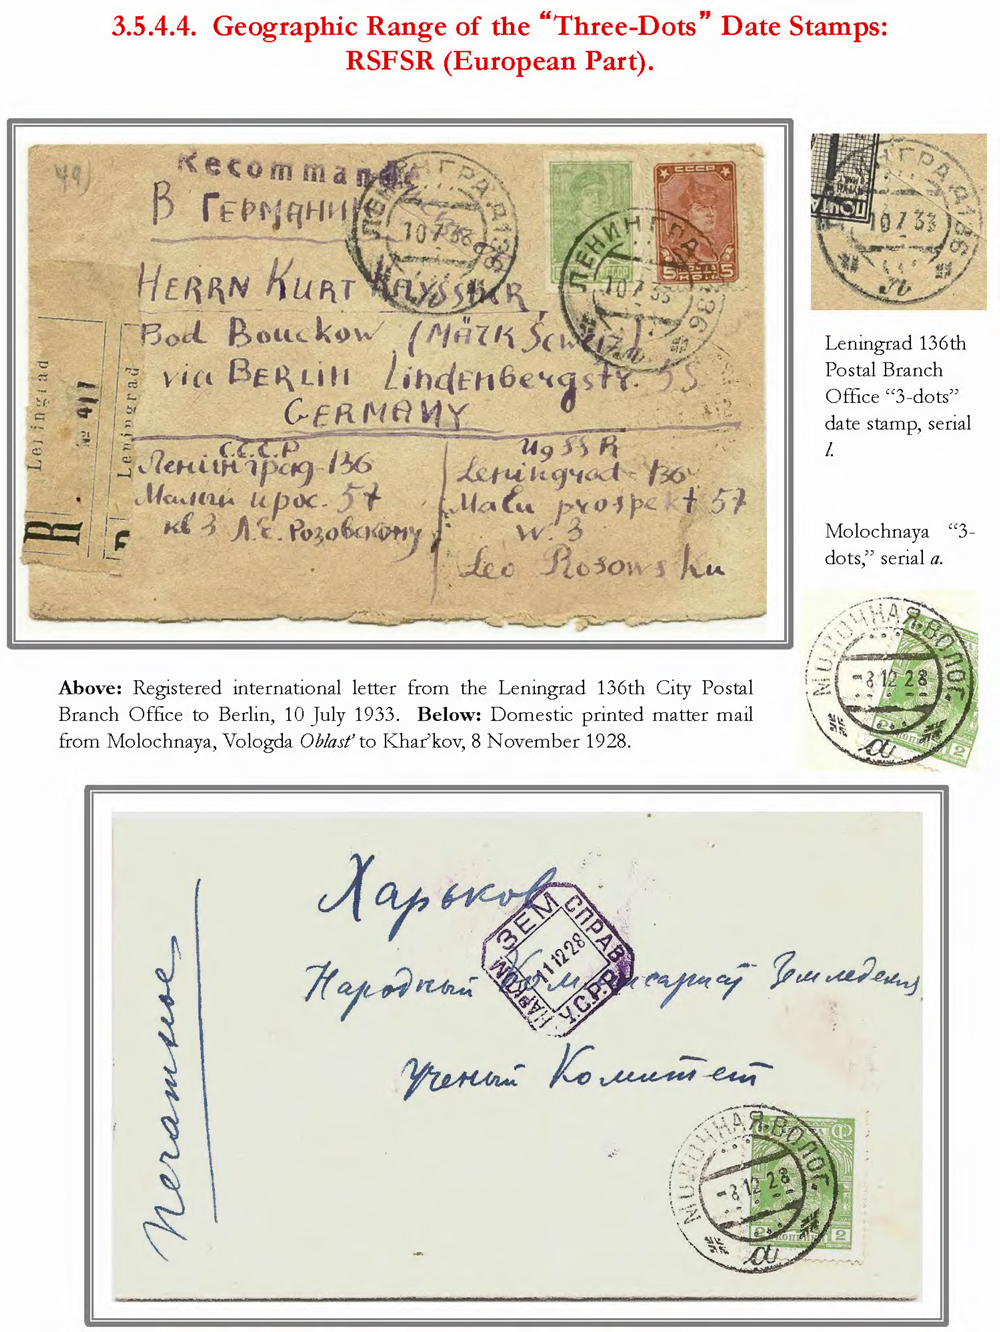 3.5.4.4. Geographic Range of the “Three-Dots” Date Stamps:
RSFSR (European Part).
49)
Recommandé
В ГЕРМАНИЮ
HERRN KURT KAYSSNER,
Bad Bouckow (MÄRK Schweiz)
via BERLIN Lindenbergstr. 55
GERMANY
С.С.С.Р
Ленинград-136
Малый прос. 57
кв 3 Л.С. Розовскому
UdSSR
Leningrad-136
Mali prospekt 57
w. 3
Leo Rosowsku
Leningrad
№ 411
R
Leningrad
ЛЕНИНГРАД 136
10 7 33
л
ЛЕНИНГРАД 136
10 7 33
л
СССР
5 5
СССР
ПОЧТА
ЛЕНИНГРАД 136
10 7 33
л
Leningrad 136th
Postal Branch
Office “3-dots”
date stamp, serial
l.
Molochnaya “3-
dots,” serial a.
МОЛОЧНАЯ·ВОЛОГ.
-8 12 28
а
2
Above: Registered international letter from the Leningrad 136th City Postal
Branch Office to Berlin, 10 July 1933. Below: Domestic printed matter mail
from Molochnaya, Vologda Oblast’ to Khar’kov, 8 November 1928.
Печатное
Харьков
Народный Комиссариат Земледелия
Ученый Комитет
НАРКОМ ЗЕМ СПРАВ У.С.Р.Р.
11 12 28
МОЛОЧНАЯ·ВОЛОГ.
-8 12 28
а
2